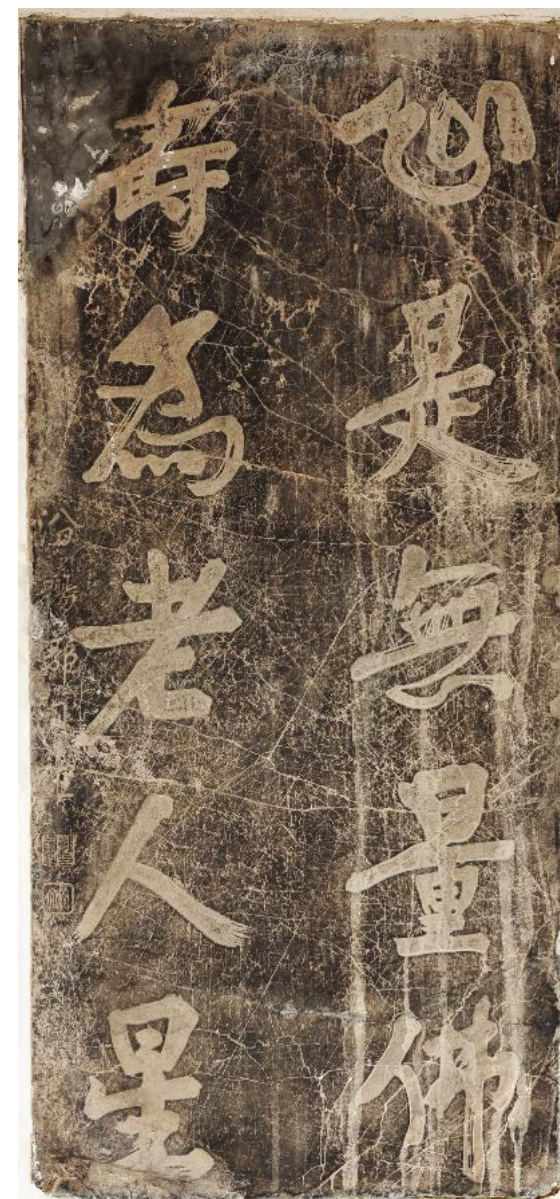 心是無量佛
壽為老人星